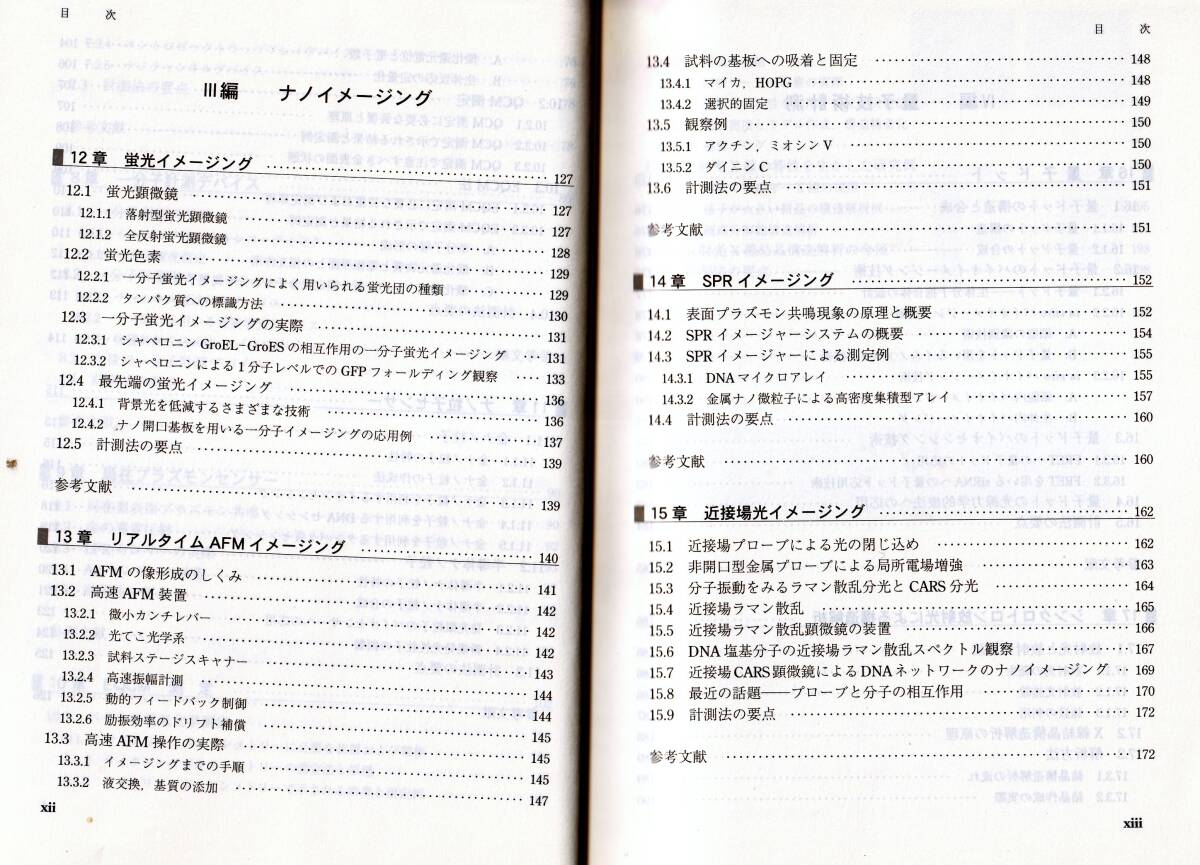 目 次
III編 ナノイメージング
12章 蛍光イメージング 127
12.1 蛍光顕微鏡 127
12.1.1 落射型蛍光顕微鏡 127
12.1.2 全反射蛍光顕微鏡 128
12.2 蛍光色素 129
12.2.1 一分子蛍光イメージングによく用いられる蛍光団の種類 129
12.2.2 タンパク質への標識方法 130
12.3 一分子蛍光イメージングの実際 131
12.3.1 シャペロニンGroEL-GroESの相互作用の一分子蛍光イメージング 131
12.3.2 シャペロニンによる1分子レベルでのGFPフォールディング観察 133
12.4 最先端の蛍光イメージング 136
12.4.1 背景光を低減するさまざまな技術 136
12.4.2 ナノ開口基板を用いる一分子イメージングの応用例 137
12.5 計測法の要点 139
参考文献 139
13章 リアルタイムAFMイメージング 140
13.1 AFMの像形成のしくみ 141
13.2 高速AFM装置 142
13.2.1 微小カンチレバー 142
13.2.2 光てこ光学系 142
13.2.3 試料ステージスキャナー 143
13.2.4 高速振幅計測 144
13.2.5 動的フィードバック制御 144
13.2.6 励振効率のドリフト補償 145
13.3 高速AFM操作の実際 145
13.3.1 イメージングまでの手順 145
13.3.2 液交換,基質の添加 147
xii
目 次
13.4 試料の基板への吸着と固定 148
13.4.1 マイカ,HOPG 148
13.4.2 選択的固定 149
13.5 観察例 150
13.5.1 アクチン,ミオシンV 150
13.5.2 ダイニンC 150
13.6 計測法の要点 151
参考文献 151
14章 SPRイメージング 152
14.1 表面プラズモン共鳴現象の原理と概要 152
14.2 SPRイメージャーシステムの概要 154
14.3 SPRイメージャーによる測定例 155
14.3.1 DNAマイクロアレイ 155
14.3.2 金属ナノ微粒子による高密度集積型アレイ 157
14.4 計測法の要点 160
参考文献 160
15章 近接場光イメージング 162
15.1 近接場プローブによる光の閉じ込め 162
15.2 非開口型金属プローブによる局所電場増強 163
15.3 分子振動をみるラマン散乱分光とCARS分光 164
15.4 近接場ラマン散乱 165
15.5 近接場ラマン散乱顕微鏡の装置 166
15.6 DNA塩基分子の近接場ラマン散乱スペクトル観察 167
15.7 近接場CARS顕微鏡によるDNAネットワークのナノイメージング 169
15.8 最近の話題——プローブと分子の相互作用 170
15.9 計測法の要点 172
参考文献 172
xiii